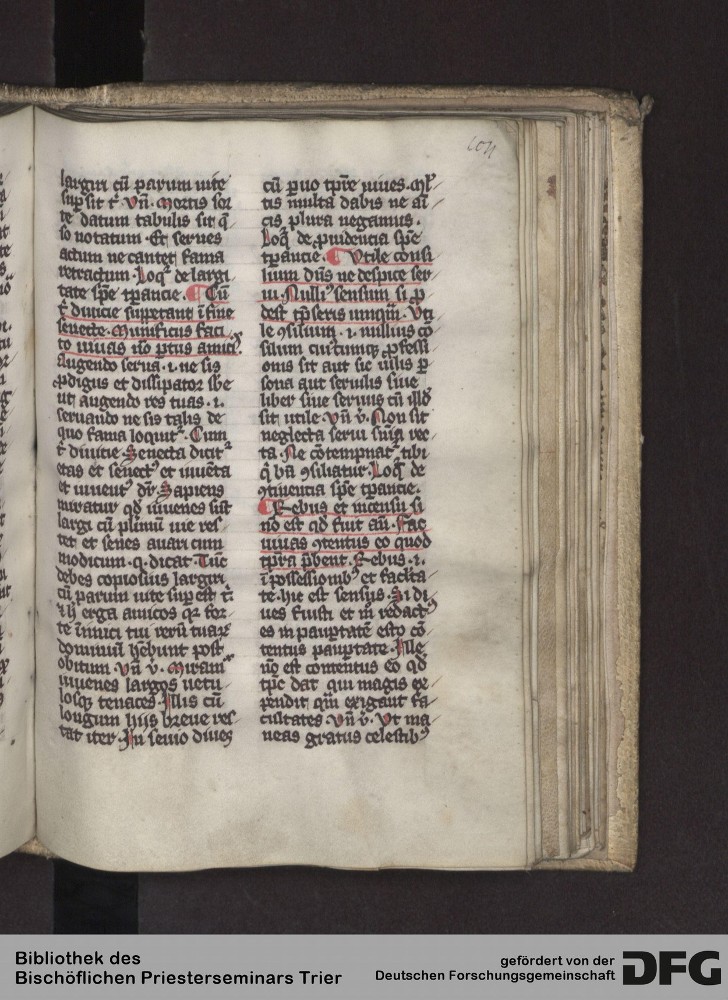 largiri cū parum uite
sup sit t̄ vn̄. Mortis sor
te datum tabulis sit q̄
so notatum. Et serues
actum ne cantet fama
retractum. Loqr de largi
tate spē tp̄ancie. Cū
t̄ diuicie supetant ī fine
senecte. Munificus faci
to uiuas nō pcus amicꝰ.
Augendo serua .i. ne sis
ꝓdigus et dissipator sbe
ut augendo res tuas .i.
seruando ne sis talis de
quo fama loquitr. Cum
t̄ diuicie. Senecta dicitr
etas et senectꝰ et iuuēta
et iuuentꝰ dr̄. Sapiens
miratur qd iuuenes sūt
largi cū plimū uie res
tet et senes auari cum
modicum .q. dicat. Tūc
debes copiosius largiri
cū parum uite sup est t̄
⁊ h̄ erga amicos qr for
te īimici tui rerū tuarꝫ
dominiū hēbunt post
obitum. Vn̄ v̄. Miramr
iuuenes largos uetu
losqꝫ tenaces. Illis cū
longum hijs breue res
tat iter. In senio diues
cū puo tp̄re uiues. Ml̄
tis multa dabis ne ai
cis plura negamus.
Loqr de prudencia spē
tp̄ancie. Vtile consi
lium dn̄s ne despice ser
ui. Nulliꝰ sensum si p
dest tp̄seris umqū. Vti
le ꝯsilium .i. nullius cō
silium cuiꝰcumqꝫ ꝓfessi
onis sit aut sic uilis p
sona aut seruilis siue
liber siue seruus cū illd
sit utile. Vn̄ v̄. Non sit
neglecta serui sn̄ia rec
ta. Ne cōtempnatr tibi
q̄ bn̄ ꝯsiliatur. Loqr de
ꝯtinencia spē tp̄ancie.
Rebus et in censu si
nō est qd fuit an̄. Fac
uiuas ꝯtentus eo quod
tp̄ra p̄bent. Rebus .i.
ī possessionibꝰ et faclta
te. hic est sensus. Si di
ues fuisti et m̄ redactꝰ
es in pauptatē esto cō
tentus pauptate. Ille
nō est contentus eo qd
tp̄c dat qui magis ex
pendit qm̄ exigant fa
cultates. Vn̄ v̄. Vt ma
neas gratus celestibꝰ
Bibliothek des
Bischöflichen Priesterseminars Trier
gefördert von der
Deutschen Forschungsgemeinschaft
DFG